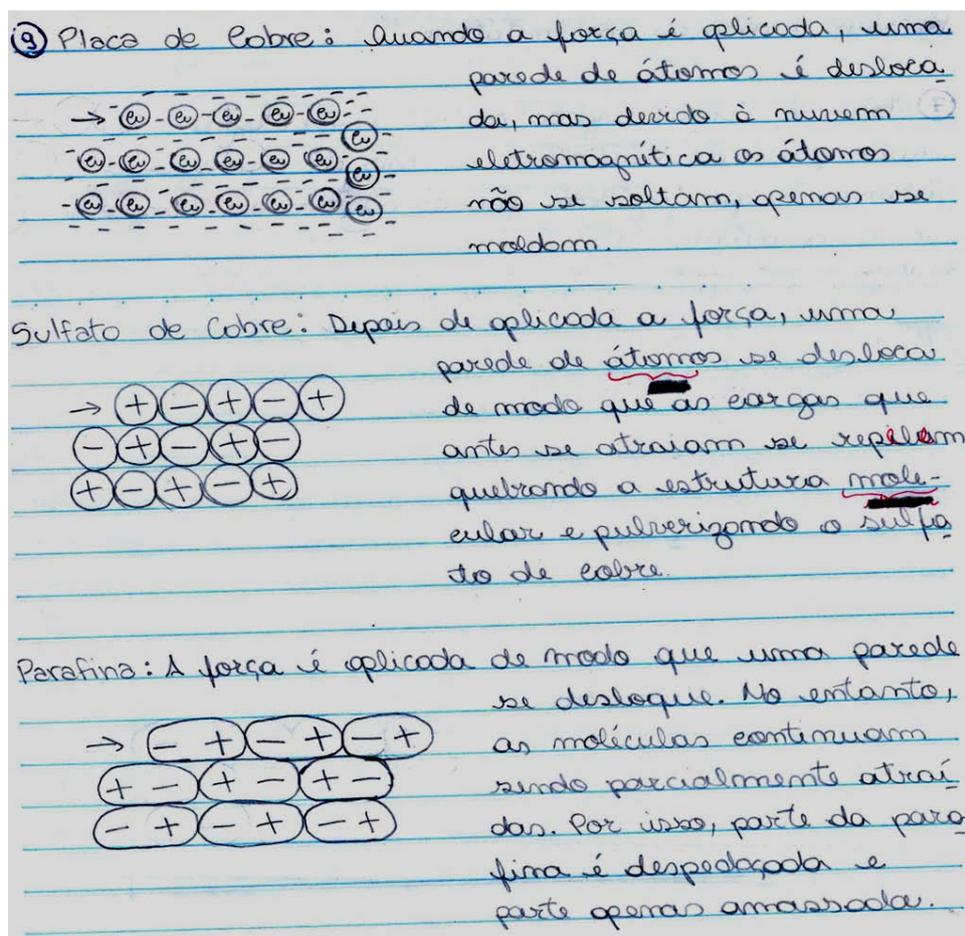 9 Placa de Cobre: Quando a força é aplicada, uma
parede de átomos é desloca
da, mas devido à nuvem
eletromagnética os átomos
não se soltam, apenas se
moldam.
→ Cu - Cu - Cu - Cu - Cu
Cu
Cu - Cu - Cu - Cu - Cu - Cu
Cu
Cu - Cu - Cu - Cu - Cu - Cu
Cu
Sulfato de Cobre: Depois de aplicada a força, uma
parede de átomos se desloca
de modo que as cargas que
antes se atraiam se repelem
quebrando a estrutura mole-
cular e pulverizando o sulfa
to de cobre.
→ + - + - +
- + - + -
+ - + - +
Parafina: A força é aplicada de modo que uma parede
se desloque. No entanto,
as moléculas continuam
sendo parcialmente atraí
das. Por isso, parte da para
fina é despedaçada e
parte apenas amassada.
→ - + - + - +
+ - + - + -
- + - + - +